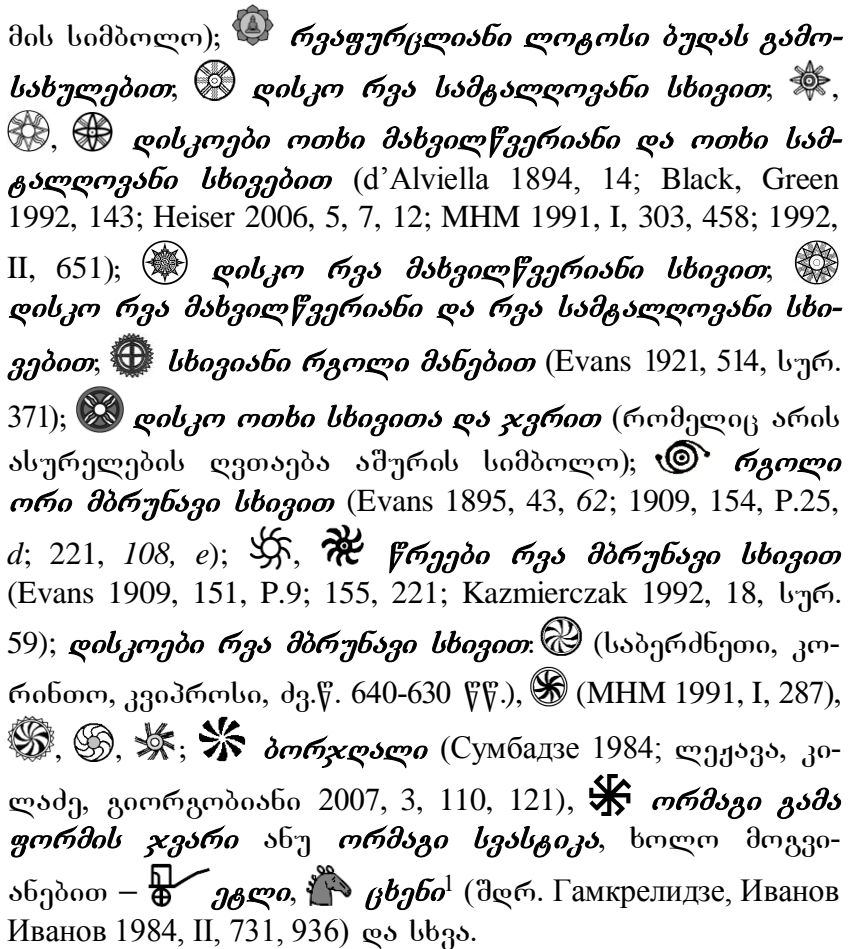 მის სიმბოლო); რვაფურცლიანი ლოტოსი ბუდას გამო-
სახულებით; დისკო რვა სამტალღოვანი სხივით; ,
, დისკოები ოთხი მახვილწვერიანი და ოთხი სამ-
ტალღოვანი სხივებით (d’Alviella 1894, 14; Black, Green
1992, 143; Heiser 2006, 5, 7, 12; MHM 1991, I, 303, 458; 1992,
II, 651); დისკო რვა მახვილწვერიანი სხივით;
დისკო რვა მახვილწვერიანი და რვა სამტალღოვანი სხი-
ვებით; სხივიანი რგოლი მანებით (Evans 1921, 514, სურ.
371); დისკო ოთხი სხივითა და ჯვრით (რომელიც არის
ასურელების ღვთაება აშურის სიმბოლო); რგოლი
ორი მბრუნავი სხივით (Evans 1895, 43, 62; 1909, 154, P.25,
d; 221, 108, e); , წრეები რვა მბრუნავი სხივით
(Evans 1909, 151, P.9; 155, 221; Kazmierczak 1992, 18, სურ.
59); დისკოები რვა მბრუნავი სხივით: (საბერძნეთი, კო-
რინთო, კვიპროსი, ძვ.წ. 640-630 წწ.), (MHM 1991, I, 287),
, , ; ბორჯღალი (Сумбадзе 1984; ლეჟავა, კი-
ლაძე, გიორგობიანი 2007, 3, 110, 121), ორმაგი გამა
ფორმის ჯვარი ანუ ორმაგი სვასტიკა, ხოლო მოგვი-
ანებით – ეტლი, ცხენი¹ (შდრ. Гамкрелидзе, Иванов
Иванов 1984, II, 731, 936) და სხვა.